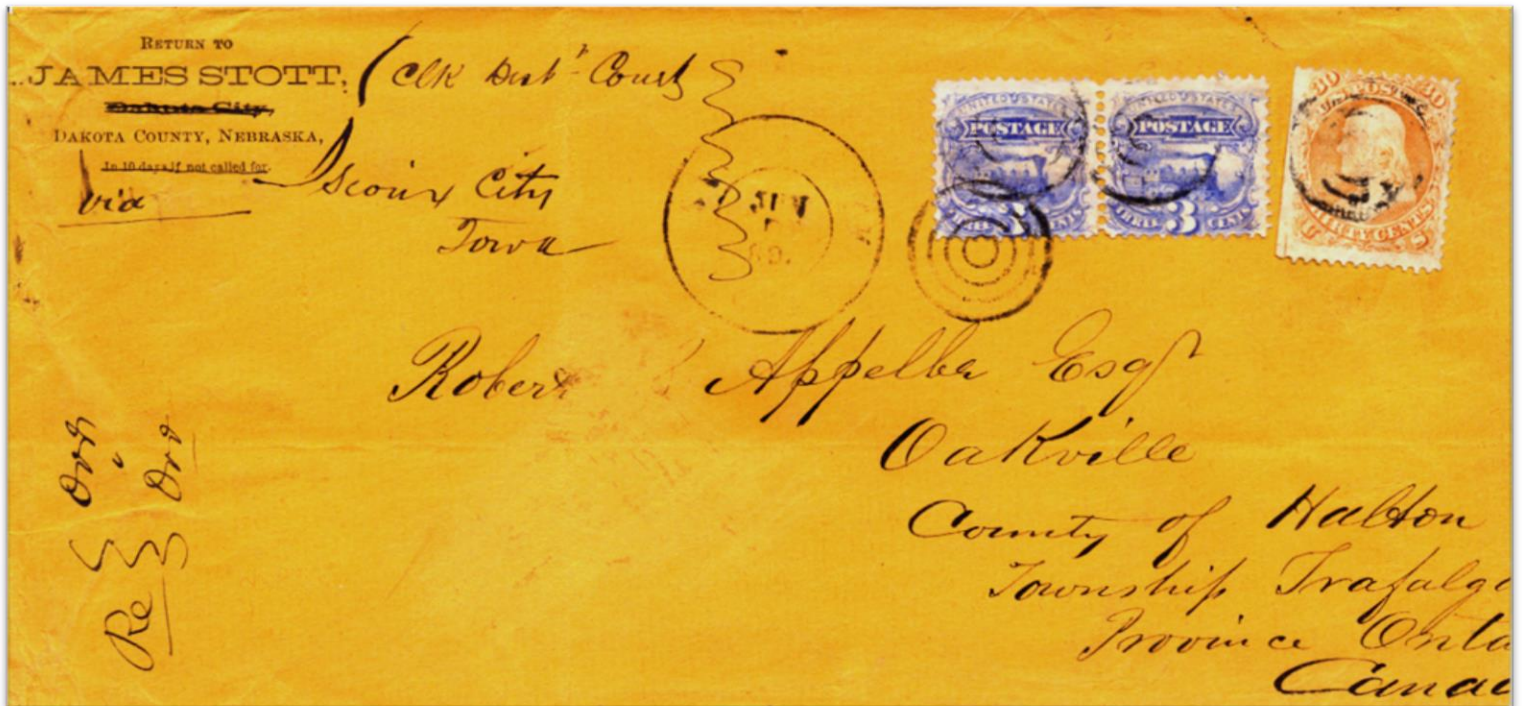 RETURN TO
JAMES STOTT, (Clk Dist Court
Dakota City,
DAKOTA COUNTY, NEBRASKA,
In 10 days if not called for.
via Sioux City
Iowa
JUN
69.
UNITED STATES
POSTAGE
THREE 3 CENTS
UNITED STATES
POSTAGE
THREE 3 CENTS
30 30
U.S. POSTAGE
THIRTY CENTS
U S
Robert Appelbe Esqr
Oakville
County of Halton
Township Trafalg
Province Onta
Canad
Re